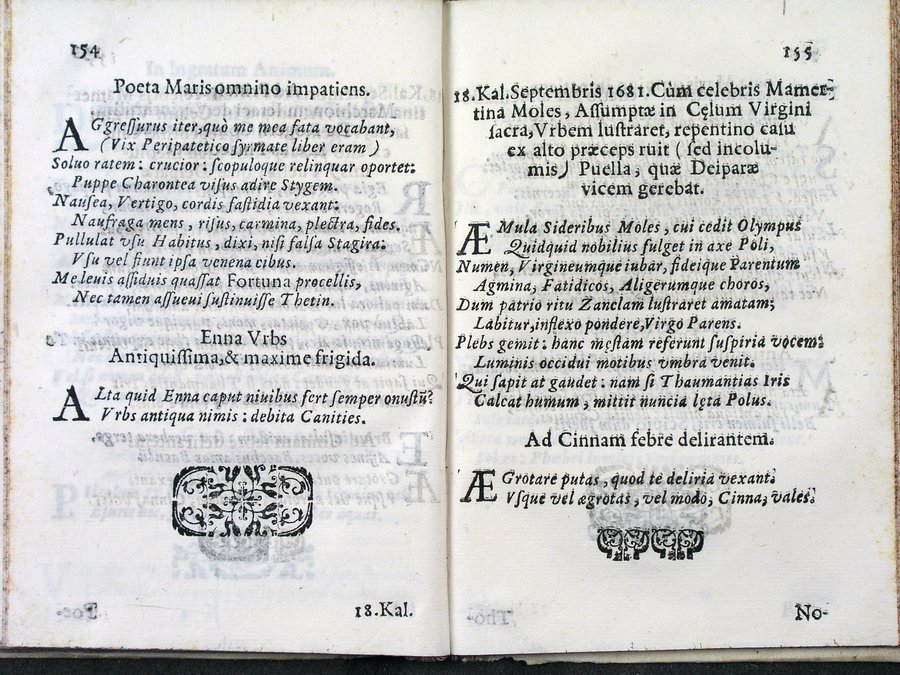 154
Poeta Maris omnino impatiens.
AGgreſſurus iter, quò me mea fata vocabant,
(Vix Peripatetico ſyrmate liber eram)
Soluo ratem: crucior: ſcopuloque relinquar oportet:
Puppe Charontea viſus adire Stygem.
Nauſea, Vertigo, cordis faſtidia vexant:
Naufraga mens, riſus, carmina, plectra, fides.
Pullulat vſu Habitus, dixi, niſi falſa Stagira:
Vſu vel fiunt ipſa venena cibus.
Me leuis aſſiduis quaſſat Fortuna procellis,
Nec tamen aſſueui ſuſtinuiſſe Thetin.
Enna Vrbs
Antiquiſſima, & maxime frigida.
ALta quid Enna caput niuibus fert ſemper onuſtũ?
Vrbs antiqua nimis: debita Canities.
18.Kal.
155
18.Kal.Septembris 1681.Cùm celebris Mamer-
tina Moles, Aſſumptæ in Cęlum Virgini
ſacra, Vrbem luſtraret, repentino caſu
ex alto præceps ruit (ſed incolu-
mis) Puella, quæ Deiparæ
vicem gerebat.
ÆMula Sideribus Moles, cui cedit Olympus
Quidquid nobilius fulget in axe Poli,
Numen, Virgineumque iubar, fideique Parentum
Agmina, Fatidicos, Aligerumque choros,
Dum patrio ritu Zanclam luſtraret amatam;
Labitur, inflexo pondere, Virgo Parens.
Plebs gemit: hanc męſtam referunt ſuſpiria vocem:
Luminis occidui motibus vmbra venit.
Qui ſapit at gaudet: nam ſi Thaumantias Iris
Calcat humum, mittit nuncia lęta Polus.
Ad Cinnam febre delirantem.
ÆGrotare putas, quod te deliria vexant:
Vſque vel ægrotas, vel modò, Cinna, vales.
No-